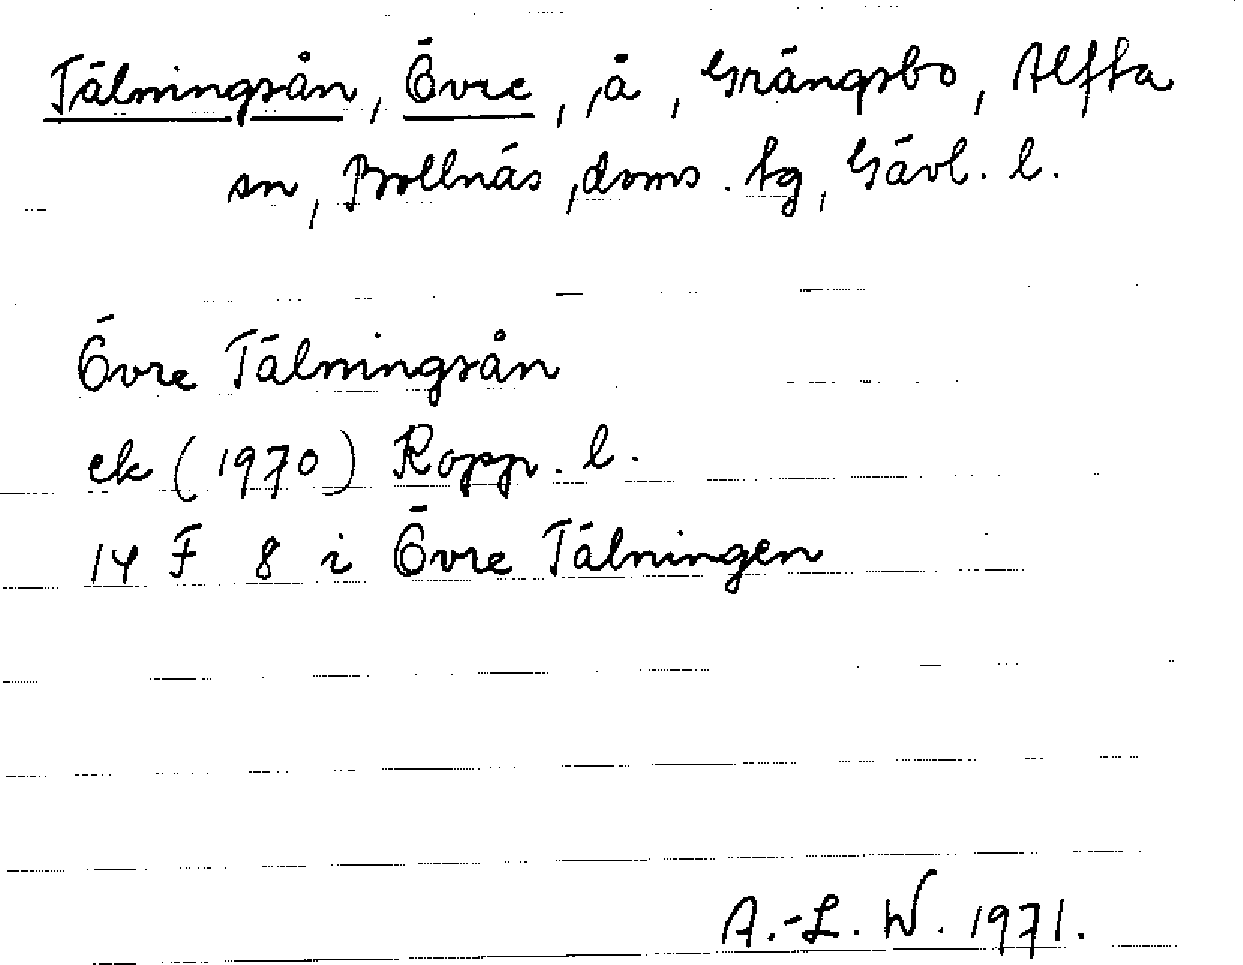 Tälningsån, Övre, å, Grängsbo, Alfta
sn, Bollnäs, doms. tg, Gävl. l.
Övre Tälningsån
ek (1970) Kopp. l.
14 F 8 i Övre Tälningen
A.-L. W. 1971.